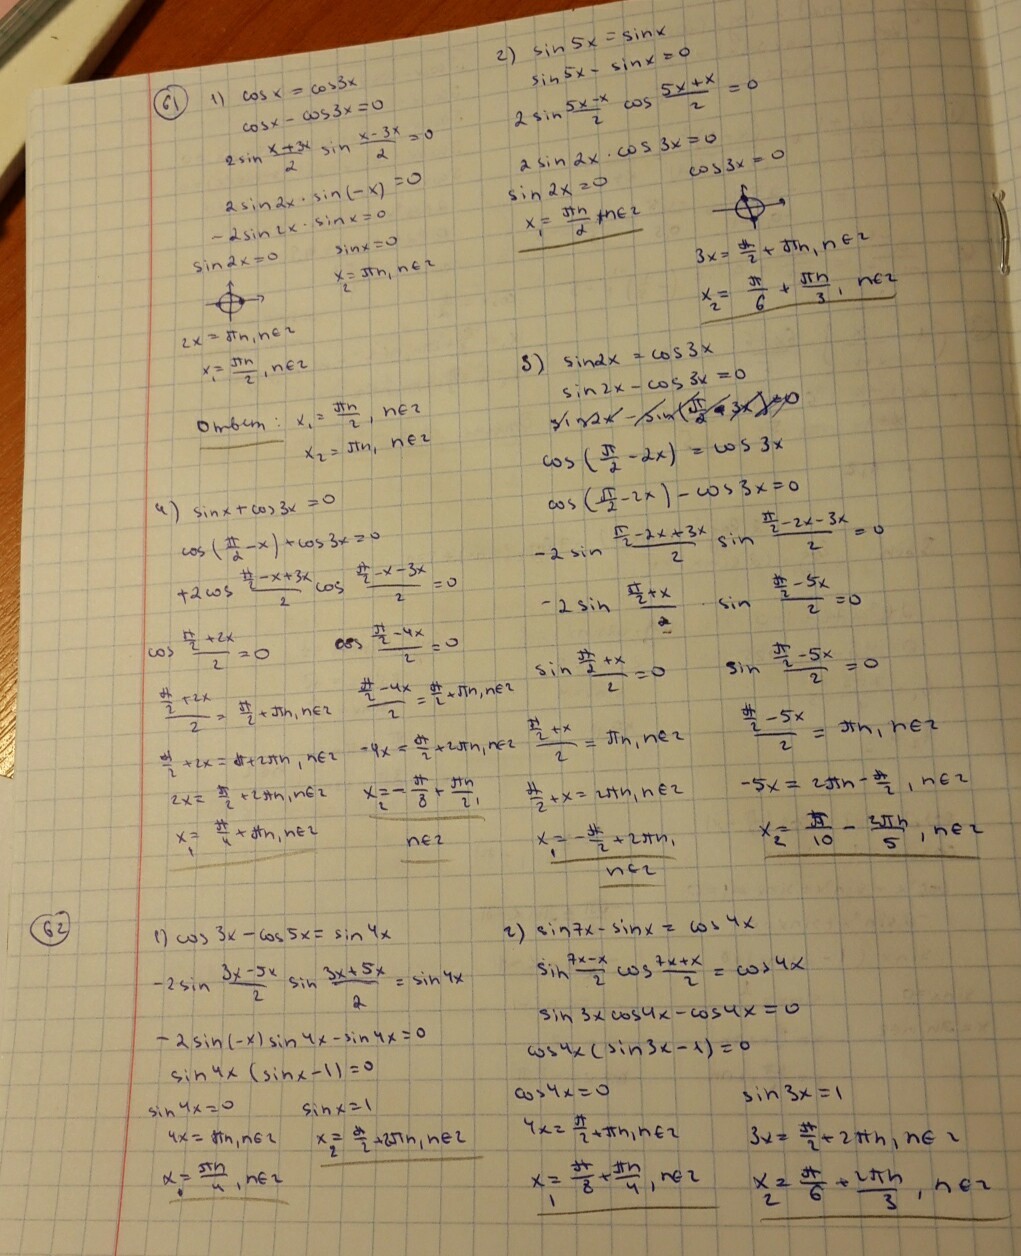 61
1) cosx = cos3x
cosx - cos3x = 0
2sin (x+3x)/2 sin (x-3x)/2 = 0
2sin2x · sin(-x) = 0
-2sin2x · sinx = 0
sin2x = 0 sinx = 0
x₂ = πn, n∈z
2x = πn, n∈z
x₁ = πn/2, n∈z
Ответ: x₁ = πn/2, n∈z
x₂ = πn, n∈z
2) sin5x = sinx
sin5x - sinx = 0
2sin (5x-x)/2 cos (5x+x)/2 = 0
2sin2x · cos3x = 0
sin2x = 0 cos3x = 0
x₁ = πn/2, n∈z
3x = π/2 + πn, n∈z
x₂ = π/6 + πn/3, n∈z
3) sin2x = cos3x
sin2x - cos3x = 0
cos(π/2 - 2x) = cos3x
cos(π/2 - 2x) - cos3x = 0
-2sin (π/2-2x+3x)/2 sin (π/2-2x-3x)/2 = 0
-2sin (π/2+x)/2 · sin (π/2-5x)/2 = 0
sin (π/2+x)/2 = 0 sin (π/2-5x)/2 = 0
(π/2+x)/2 = πn, n∈z (π/2-5x)/2 = πn, n∈z
π/2 + x = 2πn, n∈z -5x = 2πn - π/2, n∈z
x₁ = -π/2 + 2πn, n∈z x₂ = π/10 - 2πn/5, n∈z
4) sinx + cos3x = 0
cos(π/2 - x) + cos3x = 0
+2cos (π/2-x+3x)/2 cos (π/2-x-3x)/2 = 0
cos (π/2+2x)/2 = 0 cos (π/2-4x)/2 = 0
(π/2+2x)/2 = π/2 + πn, n∈z (π/2-4x)/2 = π/2 + πn, n∈z
π/2 + 2x = π + 2πn, n∈z -4x = π/2 + 2πn, n∈z
2x = π/2 + 2πn, n∈z x₂ = -π/8 + πn/2, n∈z
x₁ = π/4 + πn, n∈z
62
1) cos3x - cos5x = sin4x
-2sin (3x-5x)/2 sin (3x+5x)/2 = sin4x
-2sin(-x) sin4x - sin4x = 0
sin4x (sinx - 1) = 0
sin4x = 0 sinx = 1
4x = πn, n∈z x₂ = π/2 + 2πn, n∈z
x₁ = πn/4, n∈z
2) sin7x - sinx = cos4x
sin (7x-x)/2 cos (7x+x)/2 = cos4x
sin3x cos4x - cos4x = 0
cos4x (sin3x - 1) = 0
cos4x = 0 sin3x = 1
4x = π/2 + πn, n∈z 3x = π/2 + 2πn, n∈z
x₁ = π/8 + πn/4, n∈z x₂ = π/6 + 2πn/3, n∈z